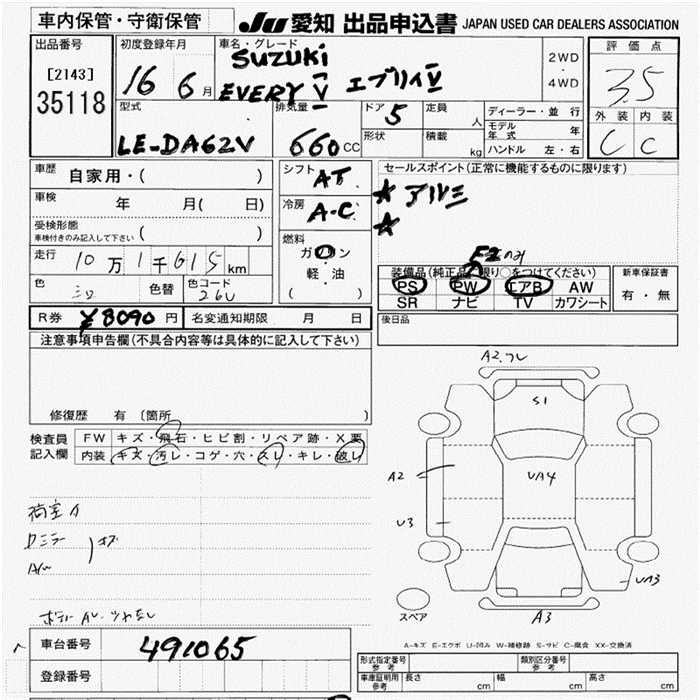 車内保管・守衛保管 JU 愛知 出品申込書 JAPAN USED CAR DEALERS ASSOCIATION
出品番号 初度登録年月 車名・グレード 評価点
[2143] 16 6月 SUZUKI 2WD・4WD 3.5
35118 EVERY V エブリイV
型式 排気量 ドア 5 定員 人 ディーラー・並行 外装 内装
LE-DA62V 660CC 形状 積載 kg モデル年式 年 C C
ハンドル 左・右
車歴 自家用・( ) シフト AT セールスポイント(正常に機能するものに限ります)
車検 年 月( 日) 冷房 A-C ★アルミ
受検形態 ★
車検付きのみ記入して下さい ( )
走行 10万1千615km 燃料 ガソリン
軽・油
( )
色 シロ 色替 色コード 26U
装備品(純正品に限り○をつけてください) 新車保証書
PS PW エアB AW 有・無
SR ナビ TV カワシート
R券 ¥8090円 名変通知期限 月 日 後日品
注意事項申告欄(不具合内容等は具体的に記入して下さい)
修復歴 有 〔箇所 〕
検査員記入欄 FW キズ・飛石・ヒビ割・リペア跡・X要
内装 キズ・汚レ・コゲ・穴・スレ・キレ・破レ
A2
S1
A2 UA4
U3
UA3
スペア A3
A-キズ E-エクボ U-凹み W-補修跡 S-サビ C-腐食 XX-交換済
車台番号 491065
登録番号
形式指定番号 参考 類別区分番号 参考
車庫証明用 参考 長さ cm 幅 cm 高さ cm